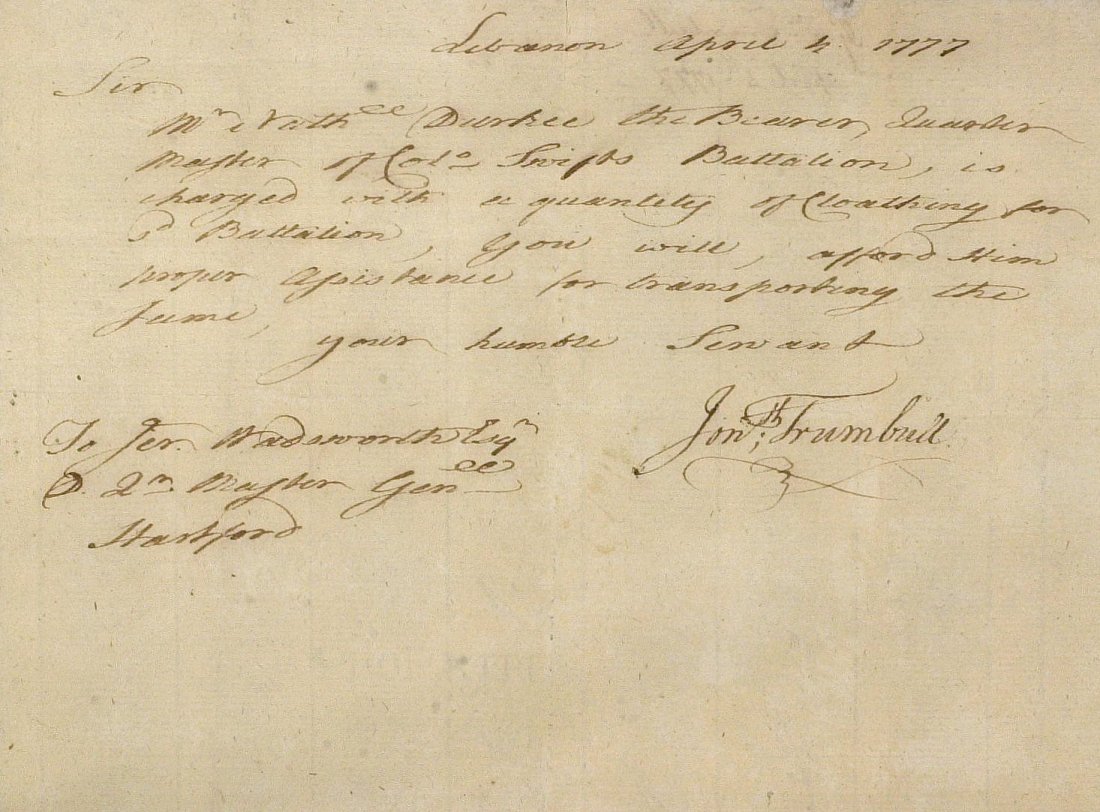 Lebanon April 4 1777
Sir
Mr Nathll Durkee the Bearer, Quarter
Master of Colo Swifts Battalion, is
charged with a quantity of Cloathing for
sd Battalion, You will, afford Him
proper Assistance for transporting the
Same,
your humble Servant
Jonth; Trumbull
To Jer. Wadsworth Esqr
D. Qr. Master Genll
Hartford